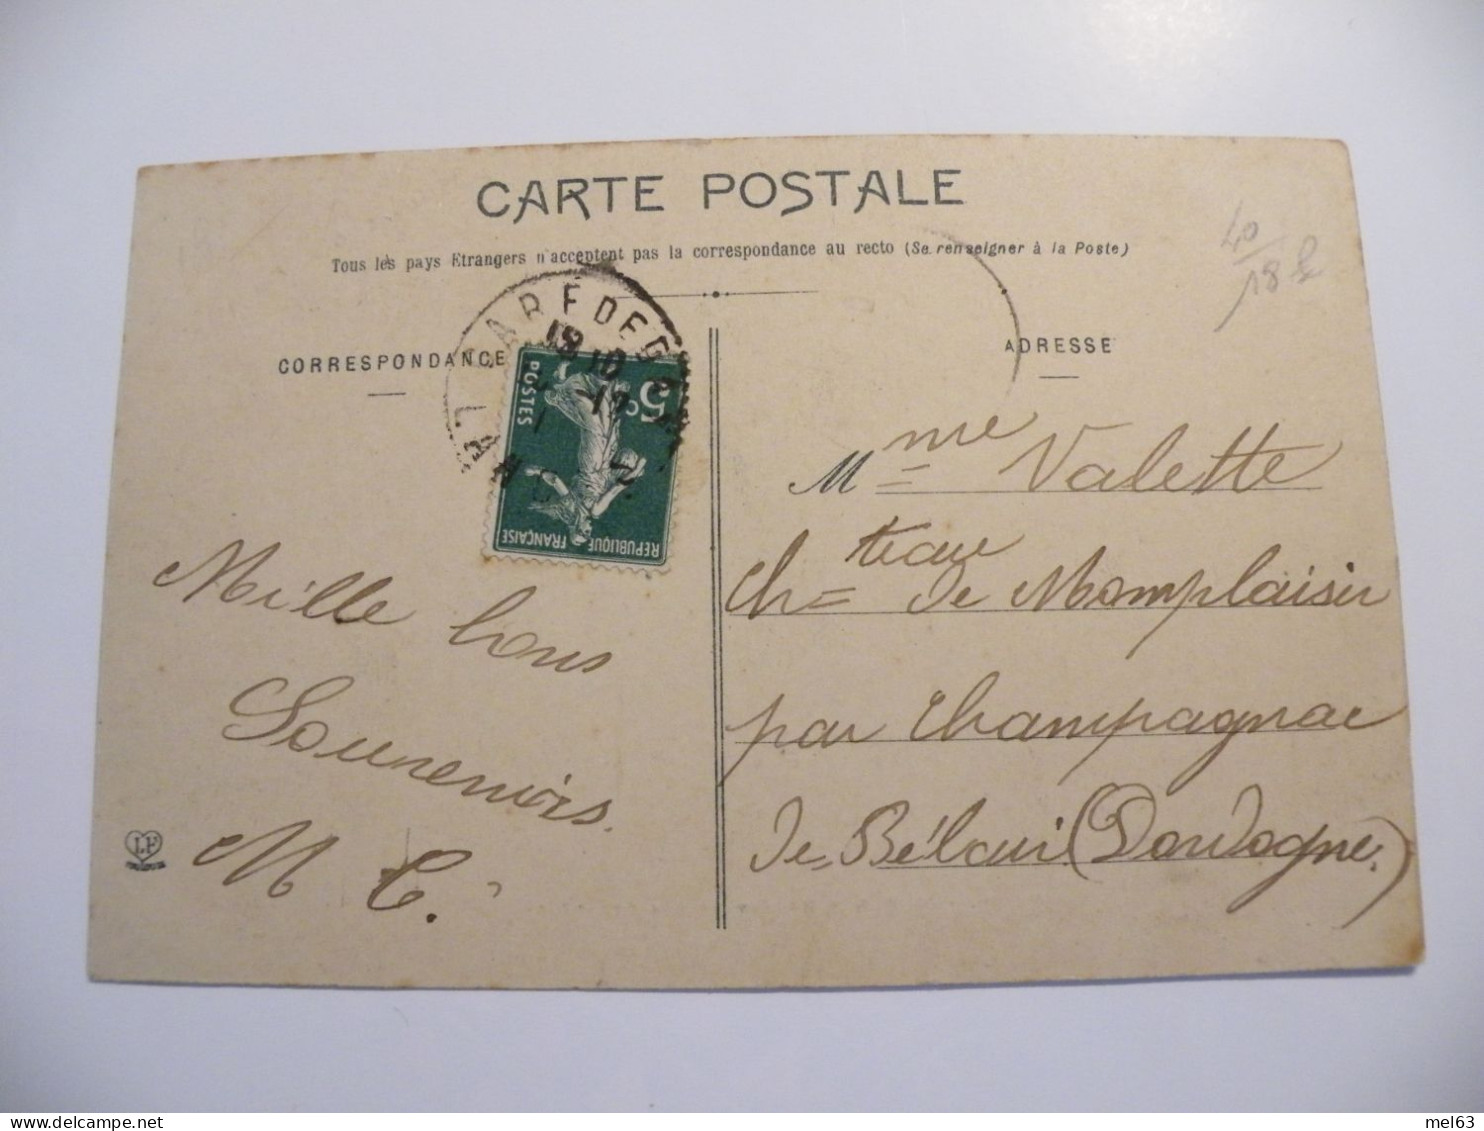 CARTE POSTALE
Tous les pays Etrangers n'acceptent pas la correspondance au recto (Se renseigner à la Poste)
CORRESPONDANCE
ADRESSE
5c
POSTES
REPUBLIQUE FRANÇAISE
40
18
Mille bons
Souvenirs.
M C.
Mme Valette
Chteau de Momplaisir
par Champagnac
de Bélair (Dordogne)
LF
mel63